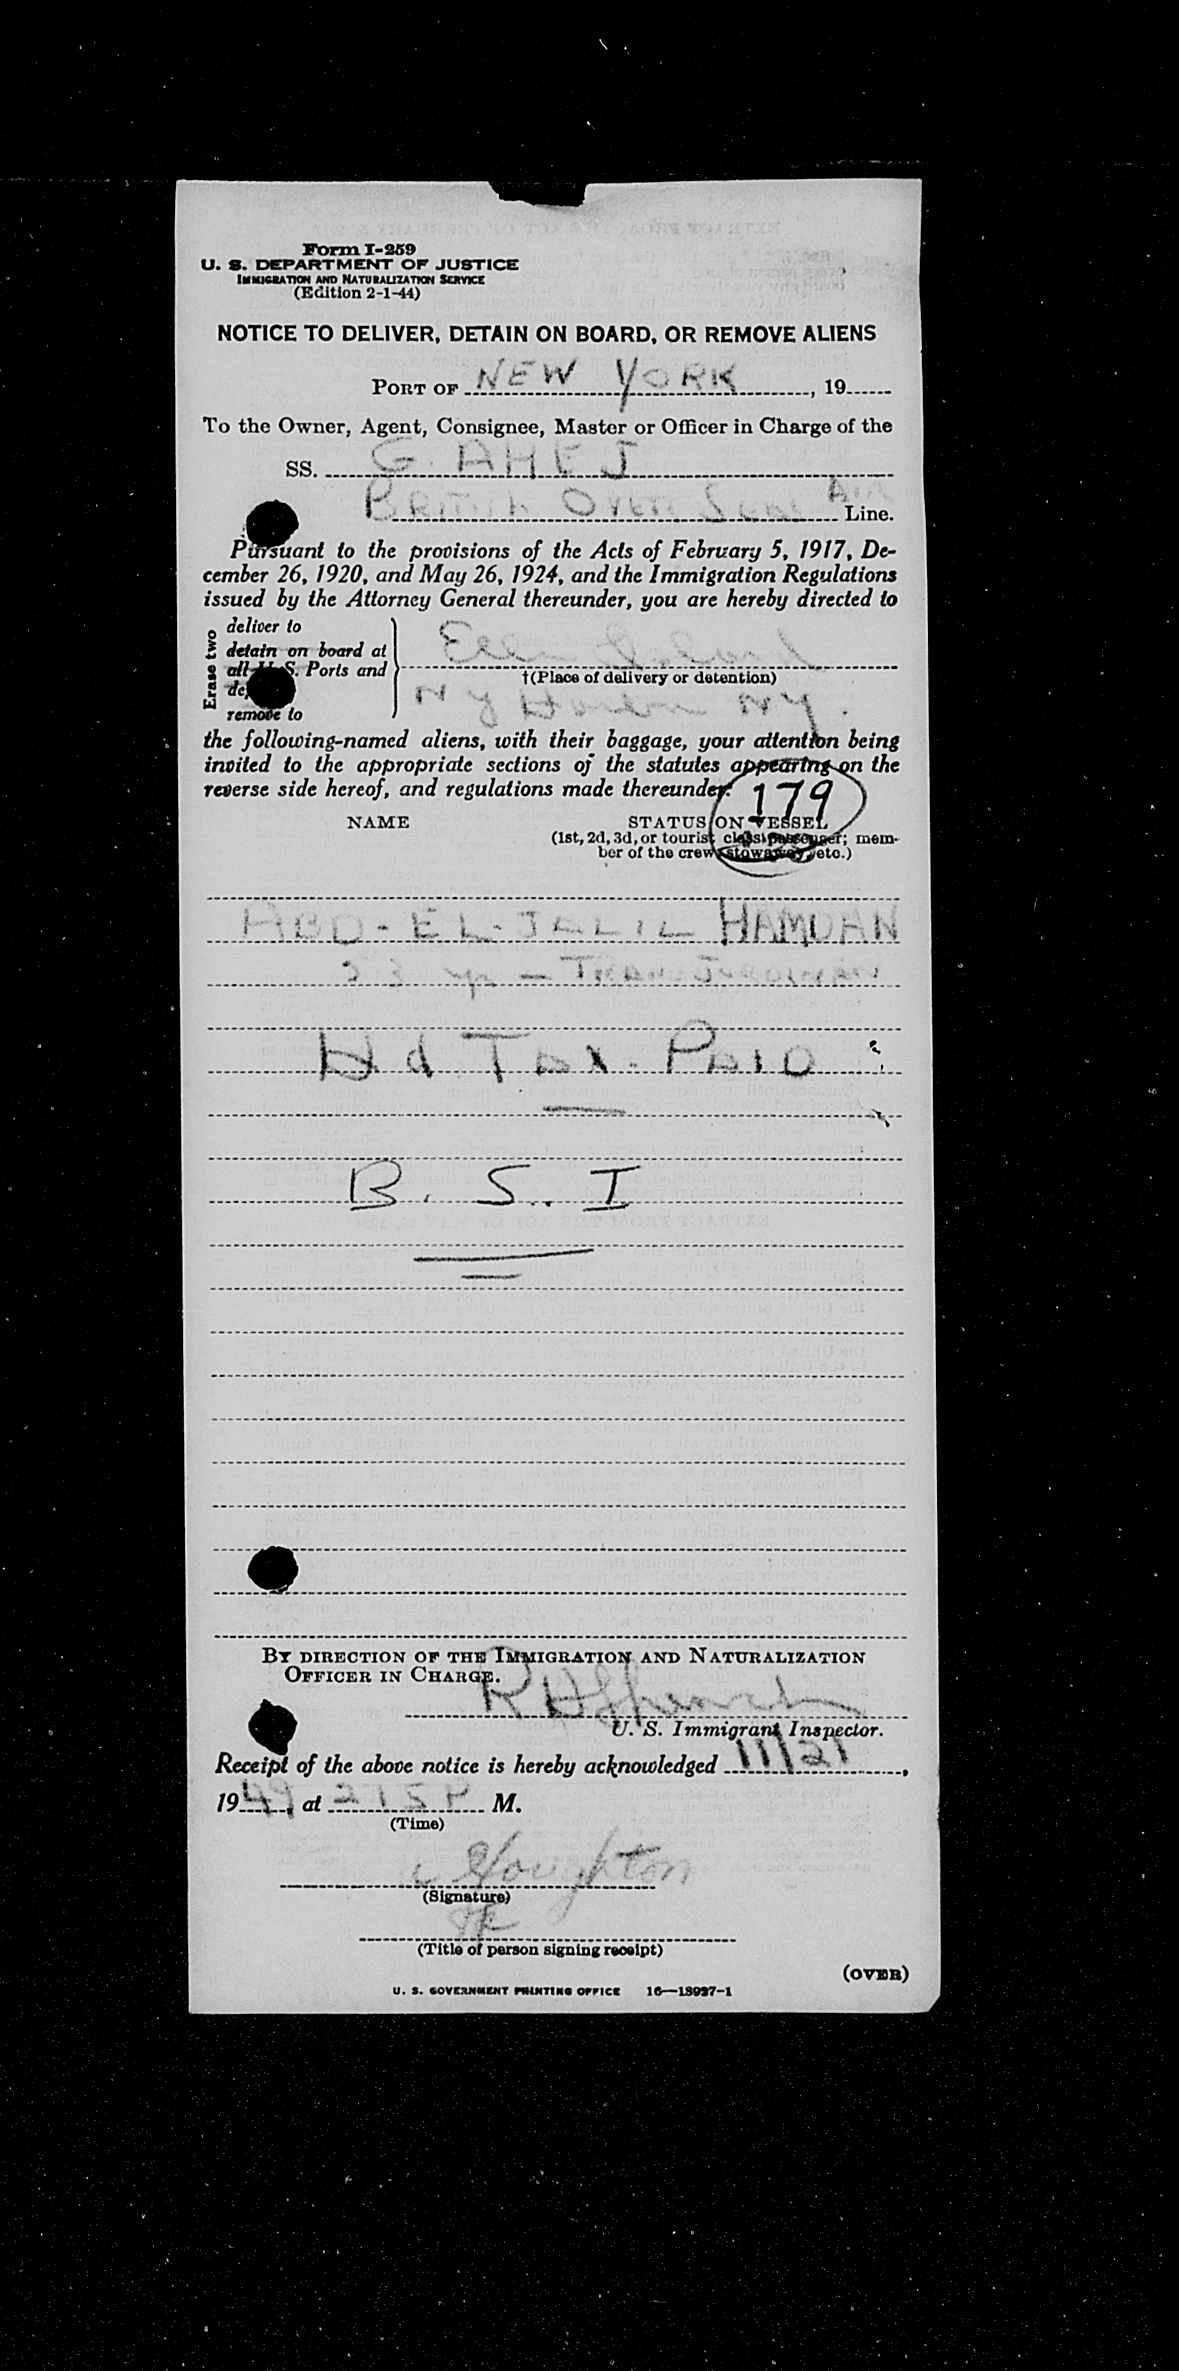 Form I-259
U. S. DEPARTMENT OF JUSTICE
IMMIGRATION AND NATURALIZATION SERVICE
(Edition 2-1-44)
NOTICE TO DELIVER, DETAIN ON BOARD, OR REMOVE ALIENS
PORT OF NEW YORK, 19
To the Owner, Agent, Consignee, Master or Officer in Charge of the
SS. G. AHEJ
BRITISH OVER SEAS AIR Line.
Pursuant to the provisions of the Acts of February 5, 1917, De-
cember 26, 1920, and May 26, 1924, and the Immigration Regulations
issued by the Attorney General thereunder, you are hereby directed to
Erase two
deliver to
detain on board at
all U. S. Ports and
remove to
Ellis Island
†(Place of delivery or detention)
N Y Harbor NY.
the following-named aliens, with their baggage, your attention being
invited to the appropriate sections of the statutes appearing on the
reverse side hereof, and regulations made thereunder:
179
NAME STATUS ON VESSEL
(1st, 2d, 3d, or tourist class passenger; mem-
ber of the crew, stowaway, etc.)
ABD-EL-JALIL HAMDAN
yr — TRANS-JORDANIAN
Hd Tax. PAID
B. S. I
BY DIRECTION OF THE IMMIGRATION AND NATURALIZATION
OFFICER IN CHARGE.
U. S. Immigrant Inspector.
Receipt of the above notice is hereby acknowledged 11/21,
1949, at 215 P M.
(Time)
Houghton
(Signature)
(Title of person signing receipt)
(OVER)
U. S. GOVERNMENT PRINTING OFFICE 16—13927-1